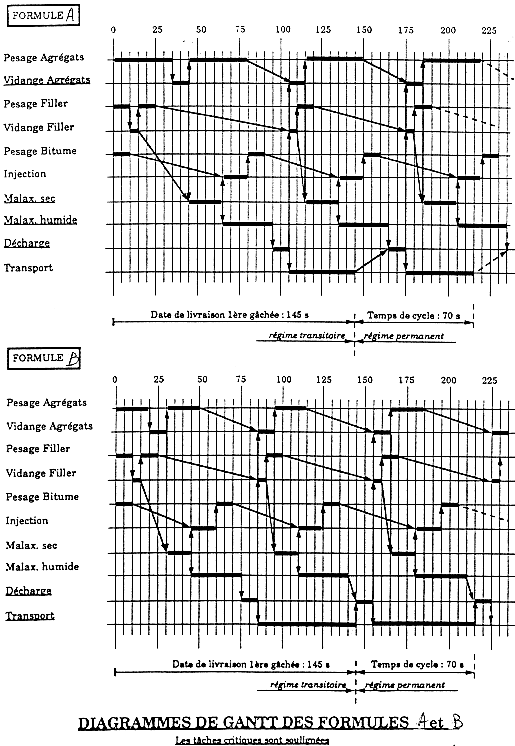 FORMULE A
0 25 50 75 100 125 150 175 200 225
Pesage Agrégats
Vidange Agrégats
Pesage Filler
Vidange Filler
Pesage Bitume
Injection
Malax. sec
Malax. humide
Décharge
Transport
Date de livraison 1ère gâchée : 145 s Temps de cycle : 70 s
régime transitoire régime permanent
FORMULE B
0 25 50 75 100 125 150 175 200 225
Pesage Agrégats
Vidange Agrégats
Pesage Filler
Vidange Filler
Pesage Bitume
Injection
Malax. sec
Malax. humide
Décharge
Transport
Date de livraison 1ère gâchée : 145 s Temps de cycle : 70 s
régime transitoire régime permanent
DIAGRAMMES DE GANTT DES FORMULES A et B
Les tâches critiques sont soulignées